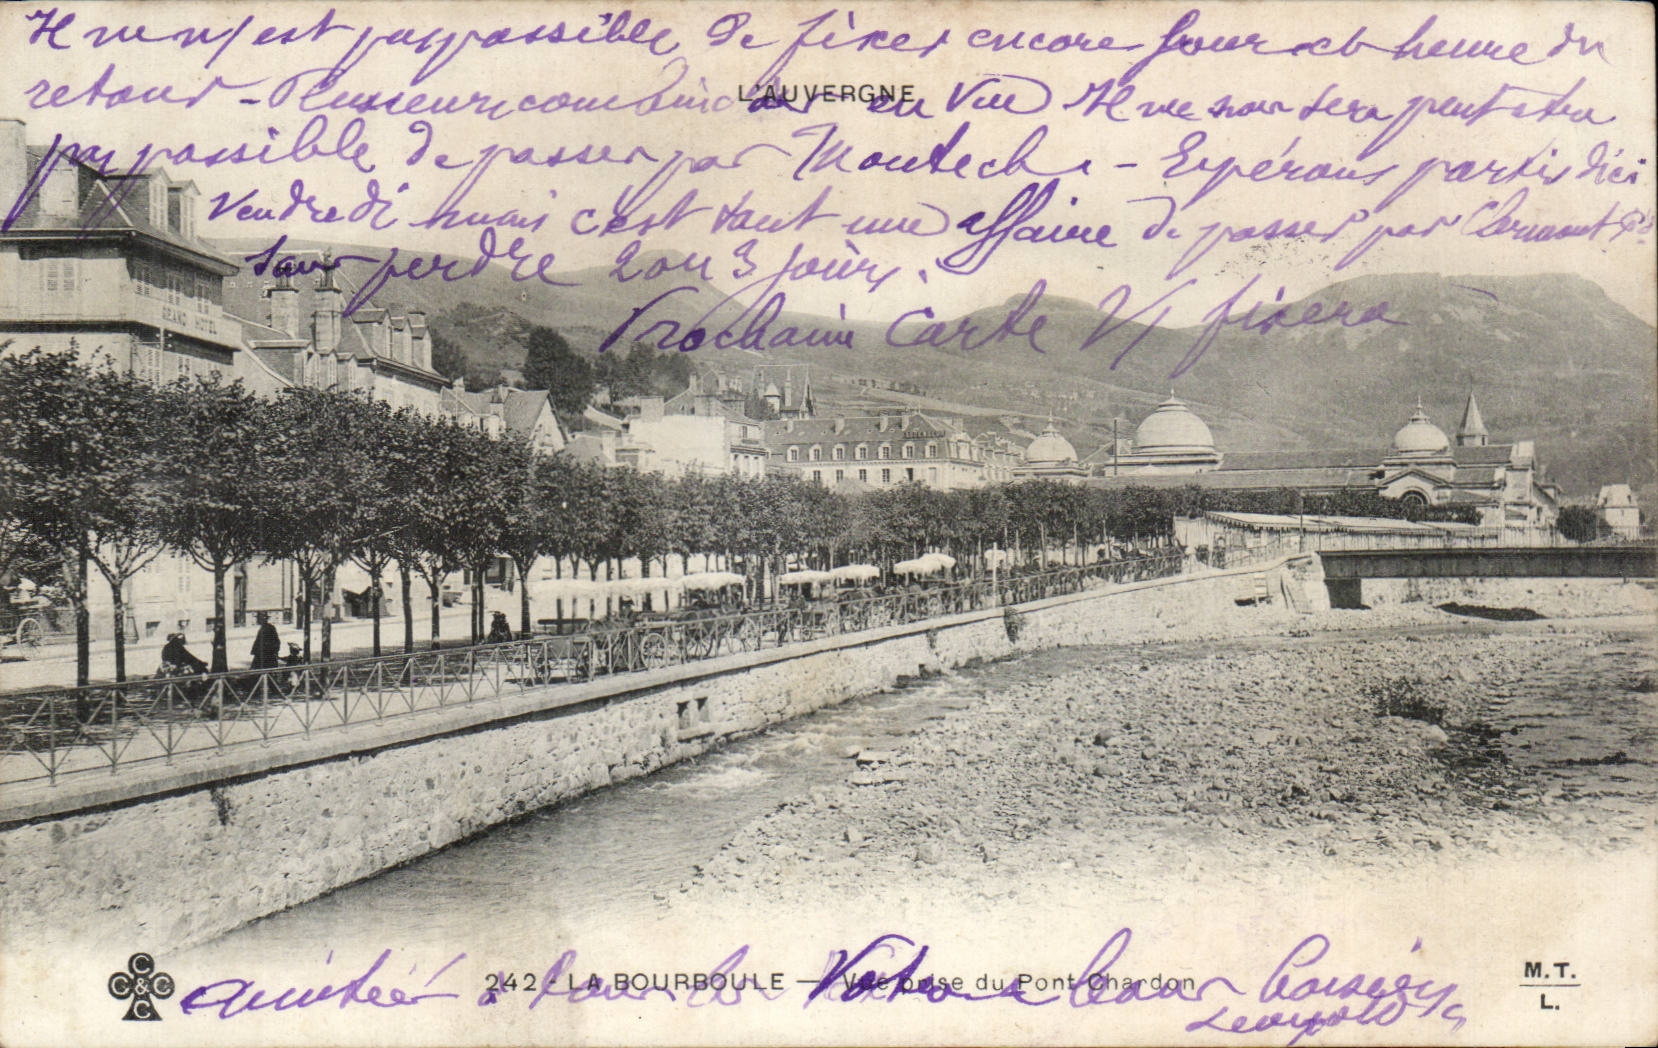 Il ne m'est pas possible de fixer encore jour et heure du
retour - Plusieurs combinaisons en vue Il ne nous sera peut etre
L'AUVERGNE
pas possible de passer par Montech - Espérons partir d'ici
Vendredi mais c'est tout une affaire de passer par Clermont Fd
sans perdre 2 ou 3 jours.
Prochaine Carte Vs fixera
GRAND HOTEL
242 - LA BOURBOULE — Vue prise du Pont Chardon
amitiés à tous Votre baisers
Leopold
C C & C C
M.T.
L.